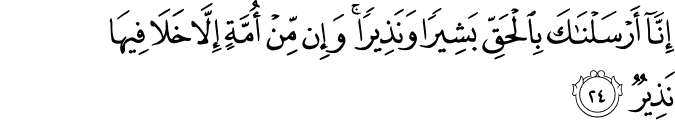 إِنَّآ أَرْسَلْنَٰكَ بِٱلْحَقِّ بَشِيرًا وَنَذِيرًا ۚ وَإِن مِّنْ أُمَّةٍ إِلَّا خَلَا فِيهَا
نَذِيرٌ ٢٤